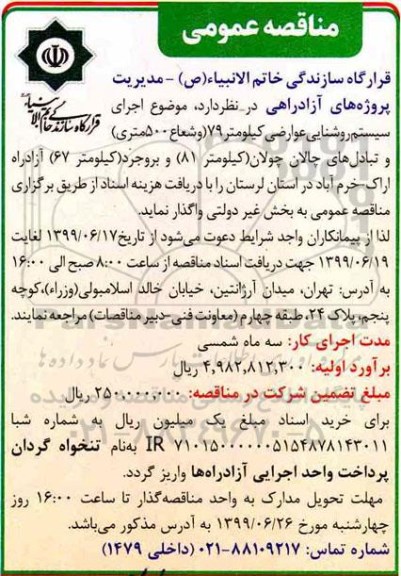 مناقصه عمومی
قرارگاه سازندگی خاتم الانبیاء(ص) - مدیریت
پروژه‌های آزادراهی در نظردارد، موضوع اجرای
سیستم‌روشنایی‌عوارضی‌کیلومتر۷۹(وشعاع۵۰۰متری)
و تبادل‌های چالان چولان(کیلومتر ۸۱) و بروجرد(کیلومتر ۶۷) آزادراه
اراک-خرم آباد در استان لرستان را با دریافت هزینه اسناد از طریق برگزاری
مناقصه عمومی به بخش غیر دولتی واگذار نماید.
لذا از پیمانکاران واجد شرایط دعوت می‌شود از تاریخ۱۳۹۹/۰۶/۱۷ لغایت
۱۳۹۹/۰۶/۱۹ جهت دریافت اسناد مناقصه از ساعت ۸:۰۰ صبح الی ۱۶:۰۰
به آدرس: تهران، میدان آرژانتین، خیابان خالد اسلامبولی(وزراء)،کوچه
پنجم، پلاک ۲۴، طبقه چهارم (معاونت فنی -دبیر مناقصات) مراجعه نمایند.
مدت اجرای کار: سه ماه شمسی
برآورد اولیه: ۴,۹۸۲,۸۱۲,۳۰۰ ریال
مبلغ تضمین شرکت در مناقصه: ۲۵۰,۰۰۰,۰۰۰ ریال
برای خرید اسناد مبلغ یک میلیون ریال به شماره شبا
IR ۷۱۰۱۵۰۰۰۰۰۰۵۱۵۴۸۷۸۱۴۳۰۱۱ به‌نام تنخواه گردان
پرداخت واحد اجرایی آزادراه‌ها واریز گردد.
مهلت تحویل مدارک به واحد مناقصه‌گذار تا ساعت ۱۶:۰۰ روز
چهارشنبه مورخ ۱۳۹۹/۰۶/۲۶ به آدرس مذکور می‌باشد.
شماره تماس: ۸۸۱۰۹۲۱۷-۰۲۱ (داخلی ۱۴۷۹)
قرارگاه سازندگی خاتم الانبیاء